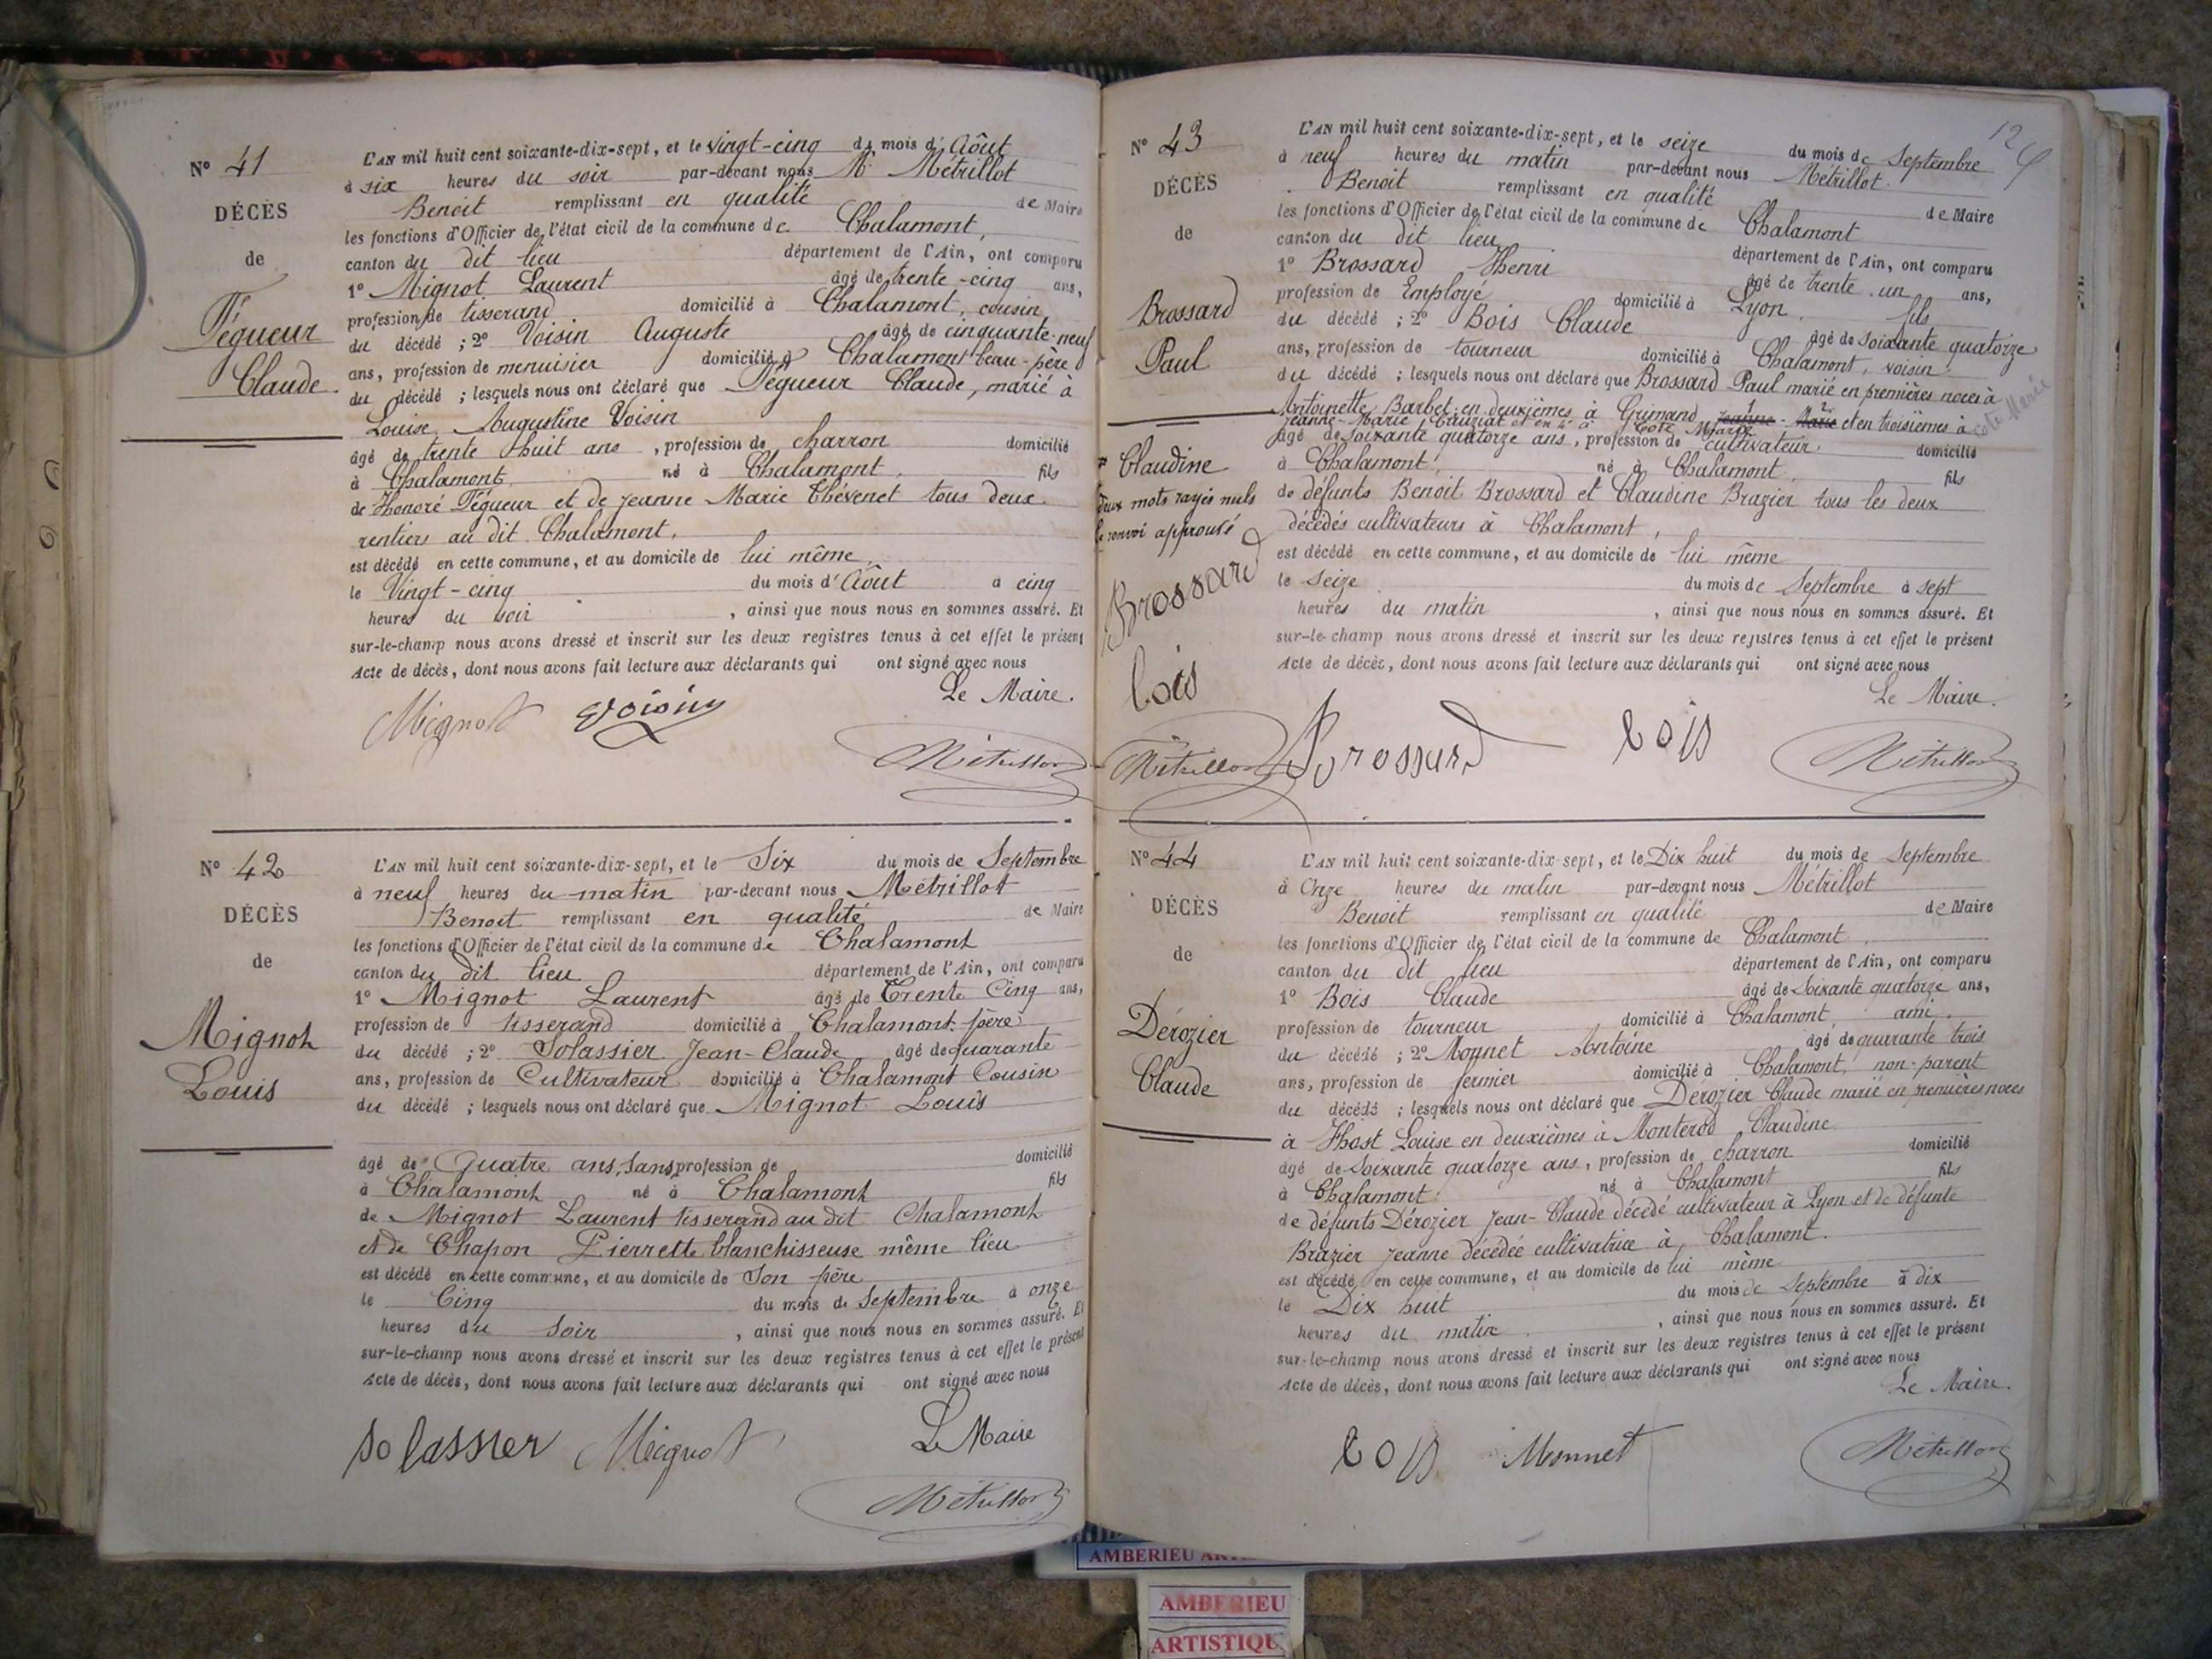 N° 41
DÉCÈS
de
Tégueur
Claude
L'AN mil huit cent soixante-dix-sept, et le vingt-cinq du mois d'Aôut
à six heures du soir par-devant nous Mr Métrillot
Benoit remplissant en qualité de Maire
les fonctions d'Officier de l'état civil de la commune de Chalamont,
canton du dit lieu département de l'Ain, ont comparu
1° Mignot Laurent âgé de trente-cinq ans,
profession de tisserand domicilié à Chalamont, cousin
du décédé ; 2° Voisin Auguste âgé de cinquante-neuf
ans, profession de menuisier domicilié à Chalamont beau-père
du décédé ; lesquels nous ont déclaré que Tégueur Claude, marié à
Louise Augustine Voisin
âgé de trente huit ans, profession de charron domicilié
à Chalamont, né à Chalamont, fils
de Honoré Tégueur et de Jeanne Marie Thévenet tous deux
rentiers au dit Chalamont,
est décédé en cette commune, et au domicile de lui même,
le Vingt-cinq du mois d'Aôut à cinq
heures du soir, ainsi que nous nous en sommes assuré. Et
sur-le-champ nous avons dressé et inscrit sur les deux registres tenus à cet effet le présent
Acte de décès, dont nous avons fait lecture aux déclarants qui ont signé avec nous
Le Maire.
Mignot Voisin
Métrillot
N° 42
DÉCÈS
de
Mignot
Louis
L'AN mil huit cent soixante-dix-sept, et le Six du mois de Septembre
à neuf heures du matin par-devant nous Métrillot
Benoit remplissant en qualité de Maire
les fonctions d'Officier de l'état civil de la commune de Chalamont
canton du dit lieu département de l'Ain, ont comparu
1° Mignot Laurent âgé de Trente Cinq ans,
profession de tisserand domicilié à Chalamont père
du décédé ; 2° Solassier Jean-Claude âgé de quarante
ans, profession de Cultivateur domicilié à Chalamont Cousin
du décédé ; lesquels nous ont déclaré que Mignot Louis
âgé de Quatre ans, Sans profession de domicilié
à Chalamont né à Chalamont fils
de Mignot Laurent tisserand au dit Chalamont
et de Chapon Pierrette blanchisseuse même lieu
est décédé en cette commune, et au domicile de Son père
le Cinq du mois de Septembre à onze
heures du Soir, ainsi que nous nous en sommes assuré. Et
sur-le-champ nous avons dressé et inscrit sur les deux registres tenus à cet effet le présent
Acte de décès, dont nous avons fait lecture aux déclarants qui ont signé avec nous
Le Maire
Solassier Mignot
Métrillot
N° 43
DÉCÈS
de
Brossard
Paul
Claudine
deux mots rayés nuls
le renvoi approuvé
Brossard
bois
Métrillot
L'AN mil huit cent soixante-dix-sept, et le seize du mois de Septembre
à neuf heures du matin par-devant nous Métrillot
Benoit remplissant en qualité de Maire
les fonctions d'Officier de l'état civil de la commune de Chalamont
canton du dit lieu département de l'Ain, ont comparu
1° Brossard Henri âgé de trente-un ans,
profession de Employé domicilié à Lyon, fils
du décédé ; 2° Bois Claude âgé de soixante quatorze
ans, profession de tourneur domicilié à Chalamont, voisin
du décédé ; lesquels nous ont déclaré que Brossard Paul marié en premières noces à
Antoinette Barbet, en deuxièmes à Grimand Jeanne-Marie et en troisièmes à
Jeanne-Marie Cruziat et en 4° à Cote Marie
âgé de soixante quatorze ans, profession de cultivateur domicilié
à Chalamont, né à Chalamont, fils
de défunts Benoit Brossard et Claudine Brazier tous les deux
décédés cultivateurs à Chalamont,
est décédé en cette commune, et au domicile de lui même
le seize du mois de Septembre à sept
heures du matin, ainsi que nous nous en sommes assuré. Et
sur-le-champ nous avons dressé et inscrit sur les deux registres tenus à cet effet le présent
Acte de décès, dont nous avons fait lecture aux déclarants qui ont signé avec nous
Le Maire.
Brossard bois
Métrillot
N° 44
DÉCÈS
de
Dérozier
Claude
L'AN mil huit cent soixante-dix-sept, et le Dix huit du mois de Septembre
à Onze heures du matin par-devant nous Métrillot
Benoit remplissant en qualité de Maire
les fonctions d'Officier de l'état civil de la commune de Chalamont
canton du dit lieu département de l'Ain, ont comparu
1° Bois Claude âgé de Soixante quatorze ans,
profession de tourneur domicilié à Chalamont ami,
du décédé ; 2° Monnet Antoine âgé de quarante trois
ans, profession de fermier domicilié à Chalamont, non-parent
du décédé ; lesquels nous ont déclaré que Dérozier Claude marié en premières noces
à Host Louise en deuxièmes à Monterod Claudine
âgé de Soixante quatorze ans, profession de charron domicilié
à Chalamont né à Chalamont fils
de défunts Dérozier Jean-Claude décédé cultivateur à Lyon et de défunte
Brazier Jeanne décédée cultivatrice à Chalamont.
est décédé en cette commune, et au domicile de lui même
le Dix huit du mois de Septembre à dix
heures du matin, ainsi que nous nous en sommes assuré. Et
sur-le-champ nous avons dressé et inscrit sur les deux registres tenus à cet effet le présent
Acte de décès, dont nous avons fait lecture aux déclarants qui ont signé avec nous
Le Maire.
bois Monnet
Métrillot
AMBERIEU
AMBERIEU
ARTISTIQU